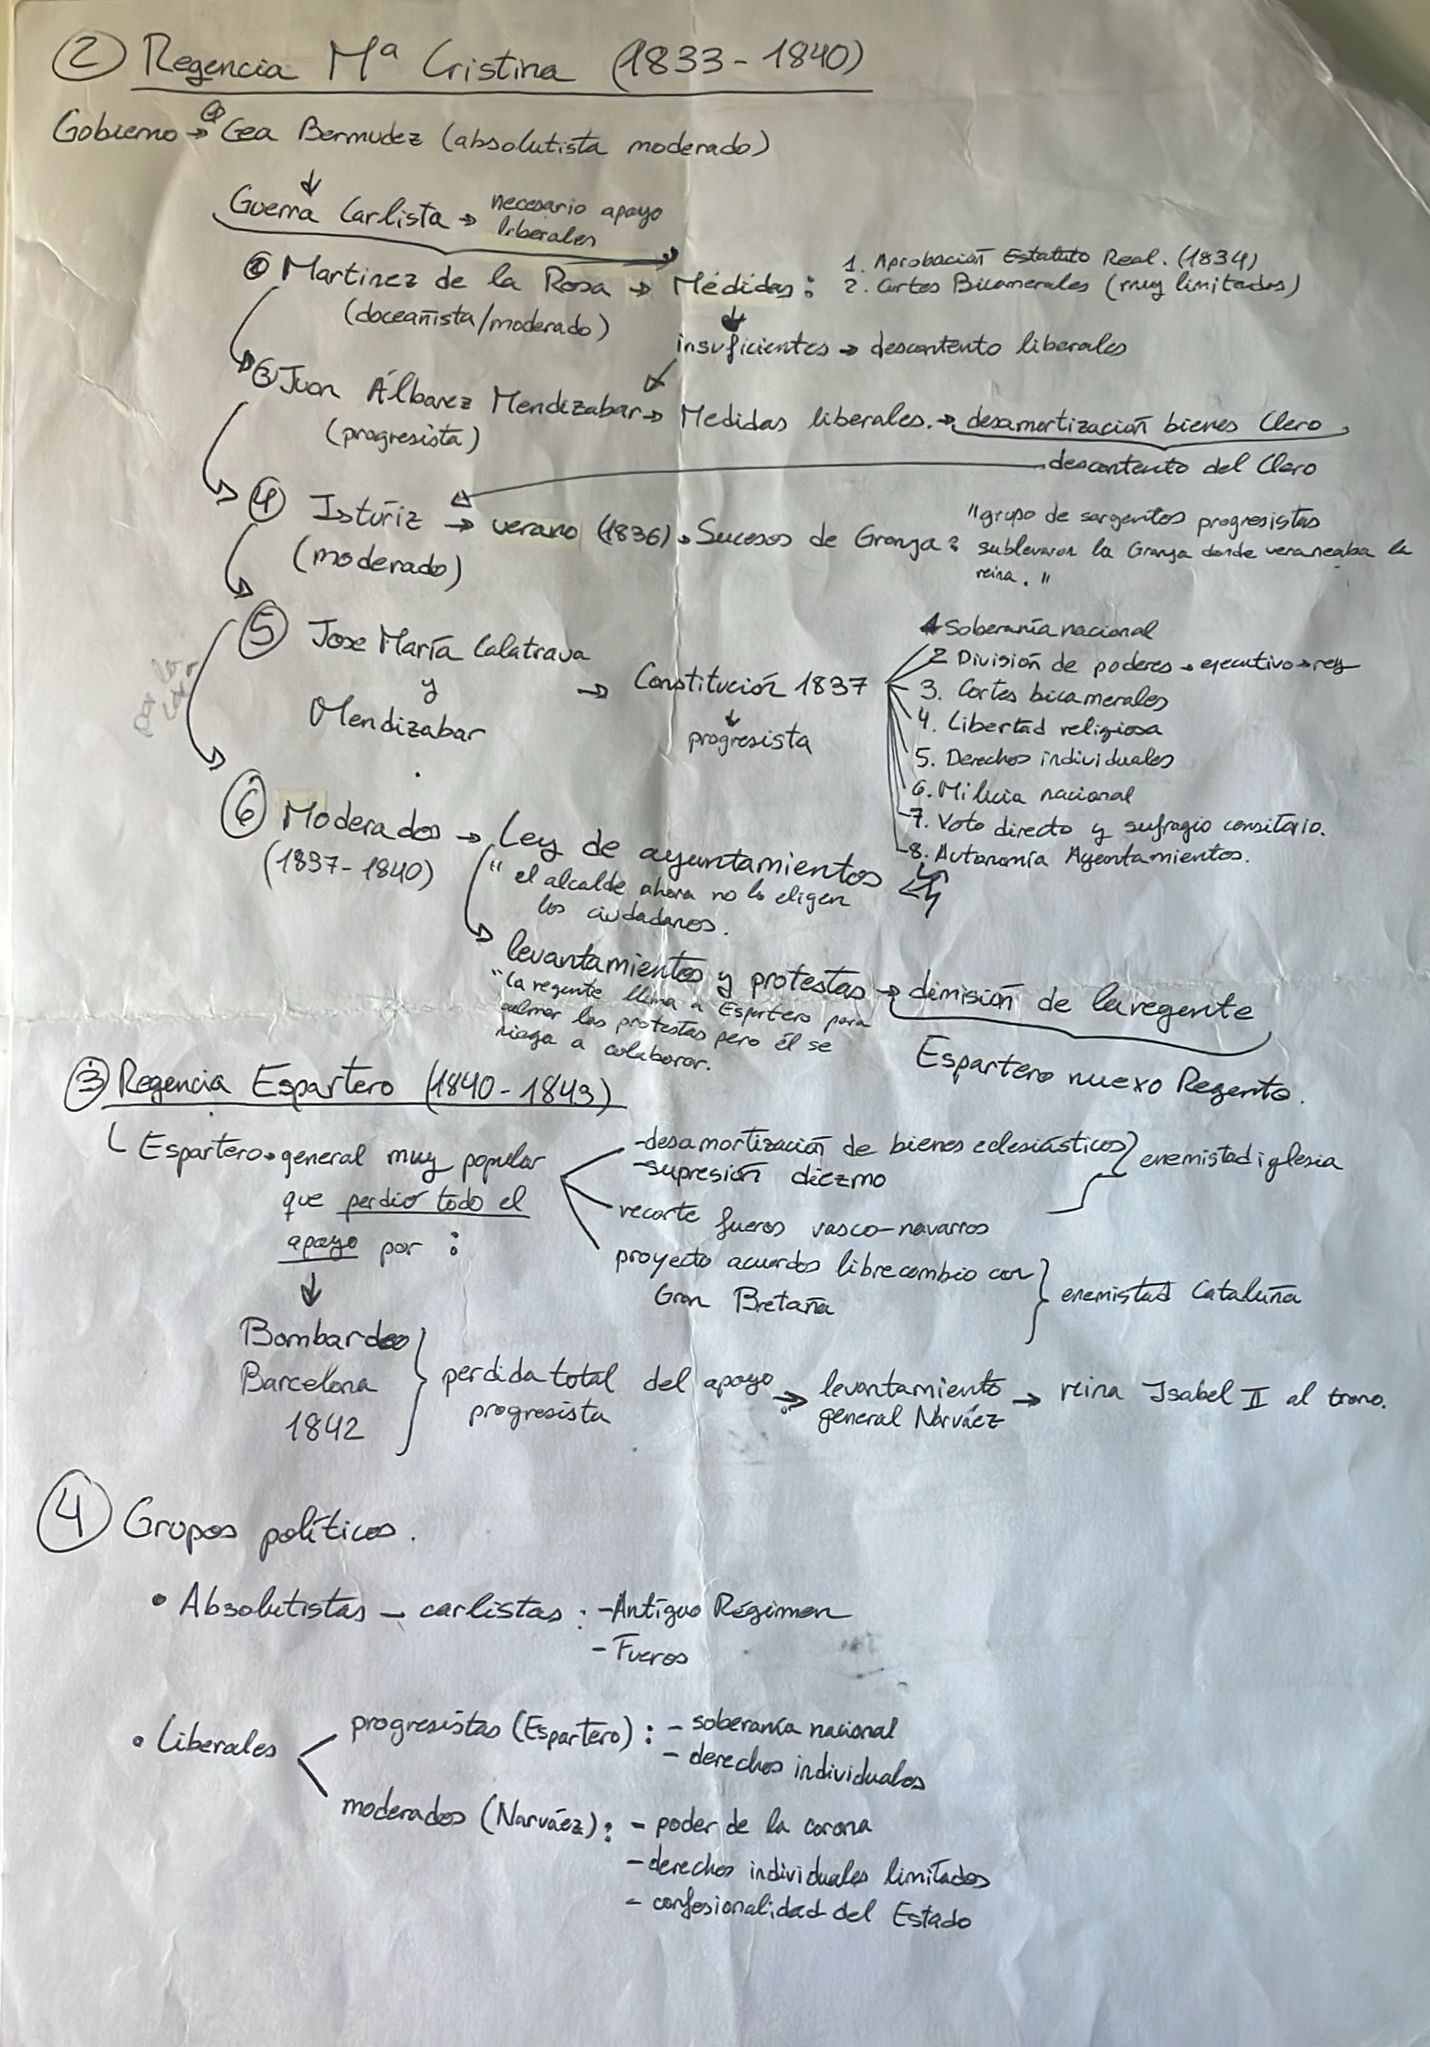 ② Regencia Mª Cristina (1833-1840)
Gobierno → ① Cea Bermudez (absolutista moderado)
↓
Guerra Carlista → necesario apoyo
liberales
② Martinez de la Rosa → Médidas: 1. Aprobación Estatuto Real. (1834)
2. Cortes Bicamerales (muy limitadas)
(doceañista/moderado)
↓
insuficientes → descontento liberales
③ Juan Álbarez Mendizabar → Medidas liberales. → desamortización bienes Clero
(progresista)
descontento del Clero
④ Istúriz → verano (1836) → Sucesos de Granja: "grupo de sargentos progresistas
sublevaron la Granja donde veraneaba la
reina."
(moderado)
⑤ Jose María Calatrava
y
Mendizabar
→ Constitución 1837
↓
progresista
1 Soberanía nacional
2 División de poderes → ejecutivo → rey
3. Cortes bicamerales
4. Libertad religiosa
5. Derechos individuales
6. Milicia nacional
7. Voto directo y sufragio censitario.
8. Autonomía Ayuntamientos.
por la
⑥ Moderados → Ley de ayuntamientos
(1837-1840)
"el alcalde ahora no lo eligen
los ciudadanos.
levantamientos y protestas → dimisión de la regente
"la regente llama a Espartero para
calmar las protestas pero él se
niega a colaborar.
Espartero nuexo Regente.
③ Regencia Espartero (1840-1843)
Espartero → general muy popular
que perdió todo el
apoyo por:
-desamortización de bienes eclesiásticos
-supresión diezmo
enemistad iglesia
recorte fueros vasco-navarros
proyecto acuerdos librecambio con
Gran Bretaña
enemistad Cataluña
↓
Bombardeo
Barcelona
1842
perdida total del apoyo
progresista
→ levantamiento
general Narváez
→ reina Isabel II al trono.
④ Grupos políticos.
• Absolutistas - carlistas: -Antiguo Régimen
- Fueros
• Liberales
progresistas (Espartero): - soberanía nacional
- derechos individuales
moderados (Narváez): - poder de la corona
-derechos individuales limitados
- confesionalidad del Estado